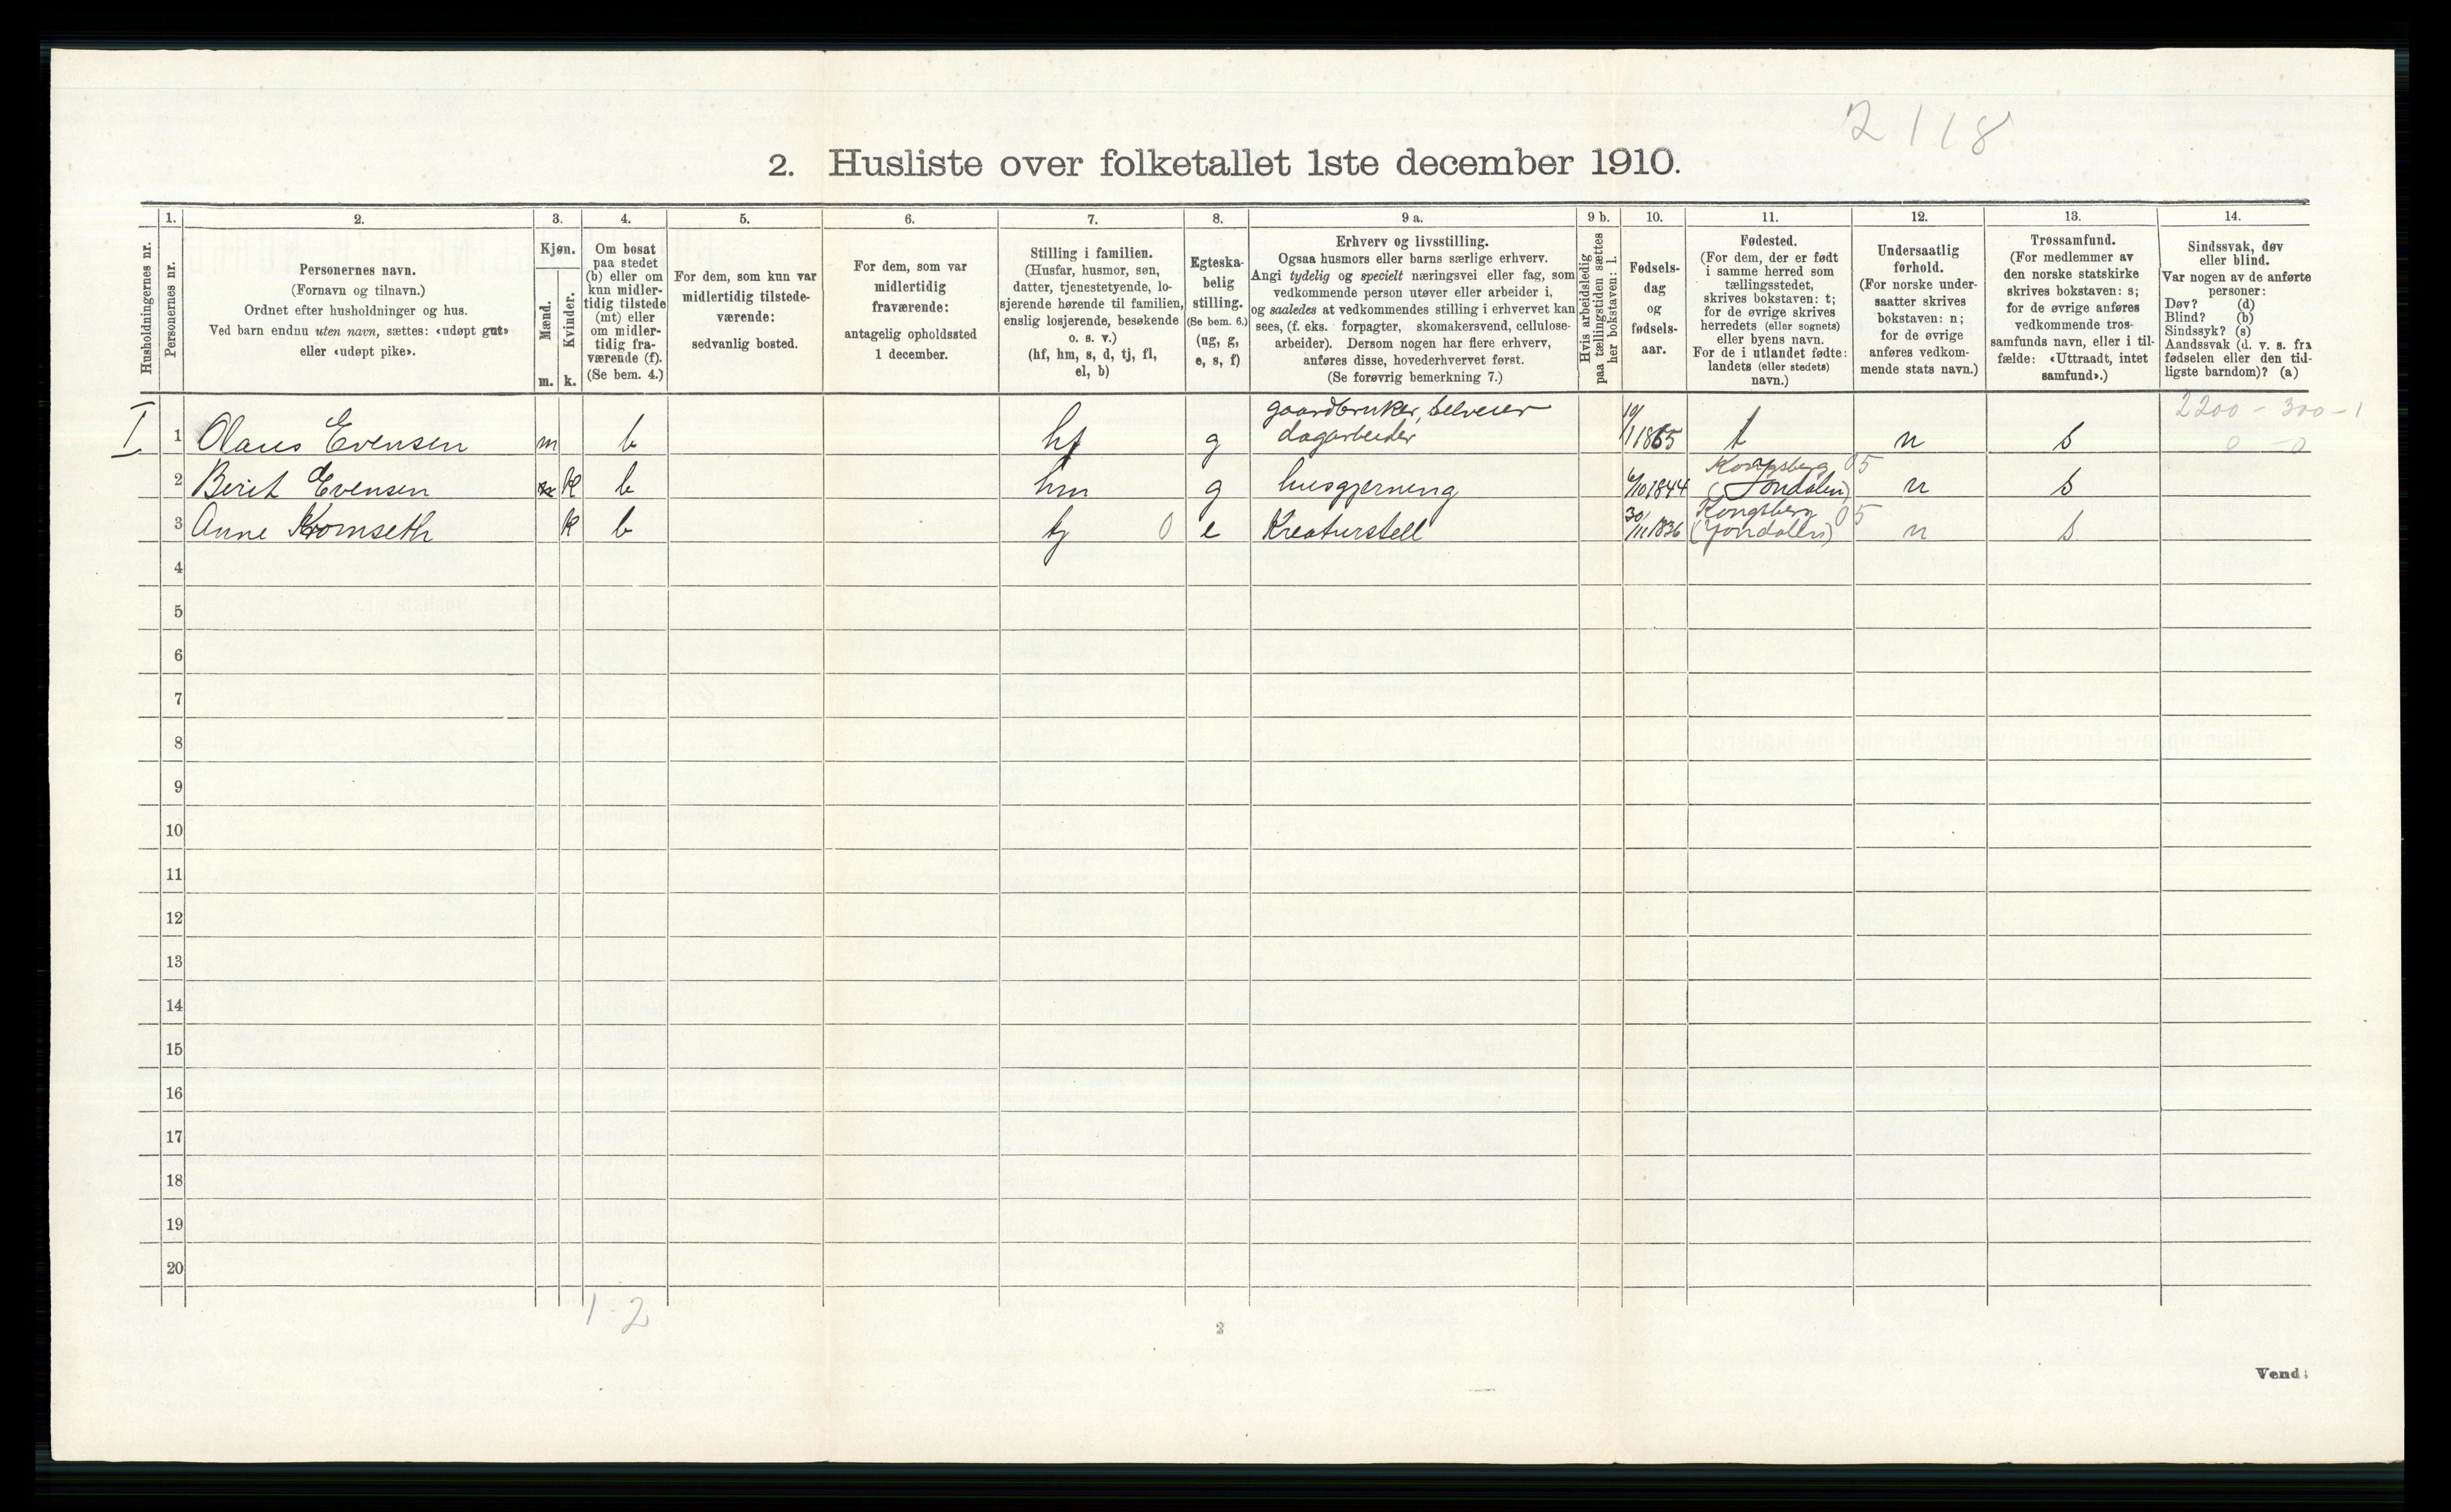 2118
2. Husliste over folketallet 1ste december 1910.
Husholdningernes nr.
1.
Personernes nr.
2.
Personernes navn.
(Fornavn og tilnavn.)
Ordnet efter husholdninger og hus.
Ved barn endnu uten navn, sættes: «udøpt gut»
eller «udøpt pike».
3.
Kjøn.
Mænd.
Kvinder.
m. k.
4.
Om bosat
paa stedet
(b) eller om
kun midler-
tidig tilstede
(mt) eller
om midler-
tidig fra-
værende (f).
(Se bem. 4.)
5.
For dem, som kun var
midlertidig tilstede-
værende:
sedvanlig bosted.
6.
For dem, som var
midlertidig
fraværende:
antagelig opholdssted
1 december.
7.
Stilling i familien.
(Husfar, husmor, søn,
datter, tjenestetyende, lo-
sjerende hørende til familien,
enslig losjerende, besøkende
o. s. v.)
(hf, hm, s, d, tj, fl,
el, b)
8.
Egteska-
belig
stilling.
(Se bem. 6.)
(ug, g,
e, s, f)
9 a.
Erhverv og livsstilling.
Ogsaa husmors eller barns særlige erhverv.
Angi tydelig og specielt næringsvei eller fag, som
vedkommende person utøver eller arbeider i,
og saaledes at vedkommendes stilling i erhvervet kan
sees, (f. eks. forpagter, skomakersvend, cellulose-
arbeider). Dersom nogen har flere erhverv,
anføres disse, hovederhvervet først.
(Se forøvrig bemerkning 7.)
9 b.
Hvis arbeidsledig
paa tællingstiden sættes
her bokstaven: l.
10.
Fødsels-
dag
og
fødsels-
aar.
11.
Fødested.
(For dem, der er født
i samme herred som
tællingsstedet,
skrives bokstaven: t;
for de øvrige skrives
herredets (eller sognets)
eller byens navn.
For de i utlandet fødte:
landets (eller stedets)
navn.)
12.
Undersaatlig
forhold.
(For norske under-
saatter skrives
bokstaven: n;
for de øvrige
anføres vedkom-
mende stats navn.)
13.
Trossamfund.
(For medlemmer av
den norske statskirke
skrives bokstaven: s;
for de øvrige anføres
vedkommende tros-
samfunds navn, eller i til-
fælde: «Uttraadt, intet
samfund».)
14.
Sindssvak, døv
eller blind.
Var nogen av de anførte
personer:
Døv? (d)
Blind? (b)
Sindssyk? (s)
Aandssvak (d. v. s. fra
fødselen eller den tid-
ligste barndom)? (a)
gaardbruker, selveier 2200 - 300 - 1
I 1 Olaus Evensen m b hf g dagarbeider 19/1 1865 t n s 0 - 0
Kongsberg 05
2 Berit Evensen k b hm g husgjerning 6/10 1844 (Jondalen) n s
Kongsberg 05
3 Anne Kromseth k b tj 0 e Kreaturstell 30/11 1836 (Jondalen) n s
4
5
6
7
8
9
10
11
12
13
14
15
16
17
18
19
20
1-2
2
Vend!